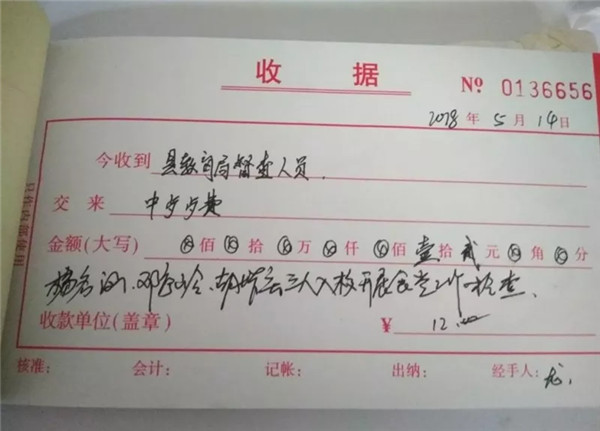 收 据
Nº 0136656
2018 年 5 月 14 日
今收到 县教育局督查人员.
交 来 中歺歺费
金额(大写) ⊗佰⊗拾⊗万⊗仟⊗佰壹拾贰元⊗角⊗分
三人入校开展食堂工作检查.
收款单位(盖章) ¥ 12.00
核准: 会计: 记帐: 出纳: 经手人: